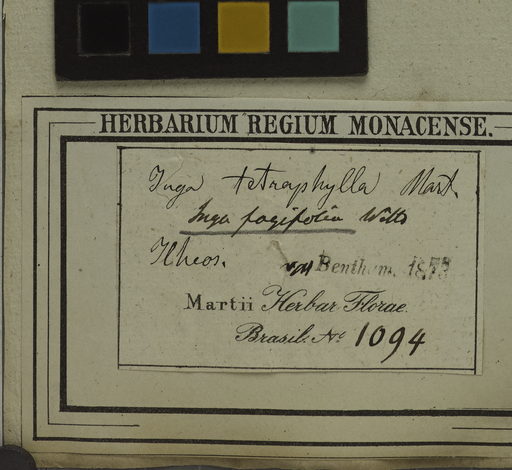 HERBARIUM REGIUM MONACENSE.
Inga tetraphylla Mart.
Inga fagifolia Willd
Ilheos.
Bentham, 1873
Martii Herbar. Florae
Brasil. No 1094